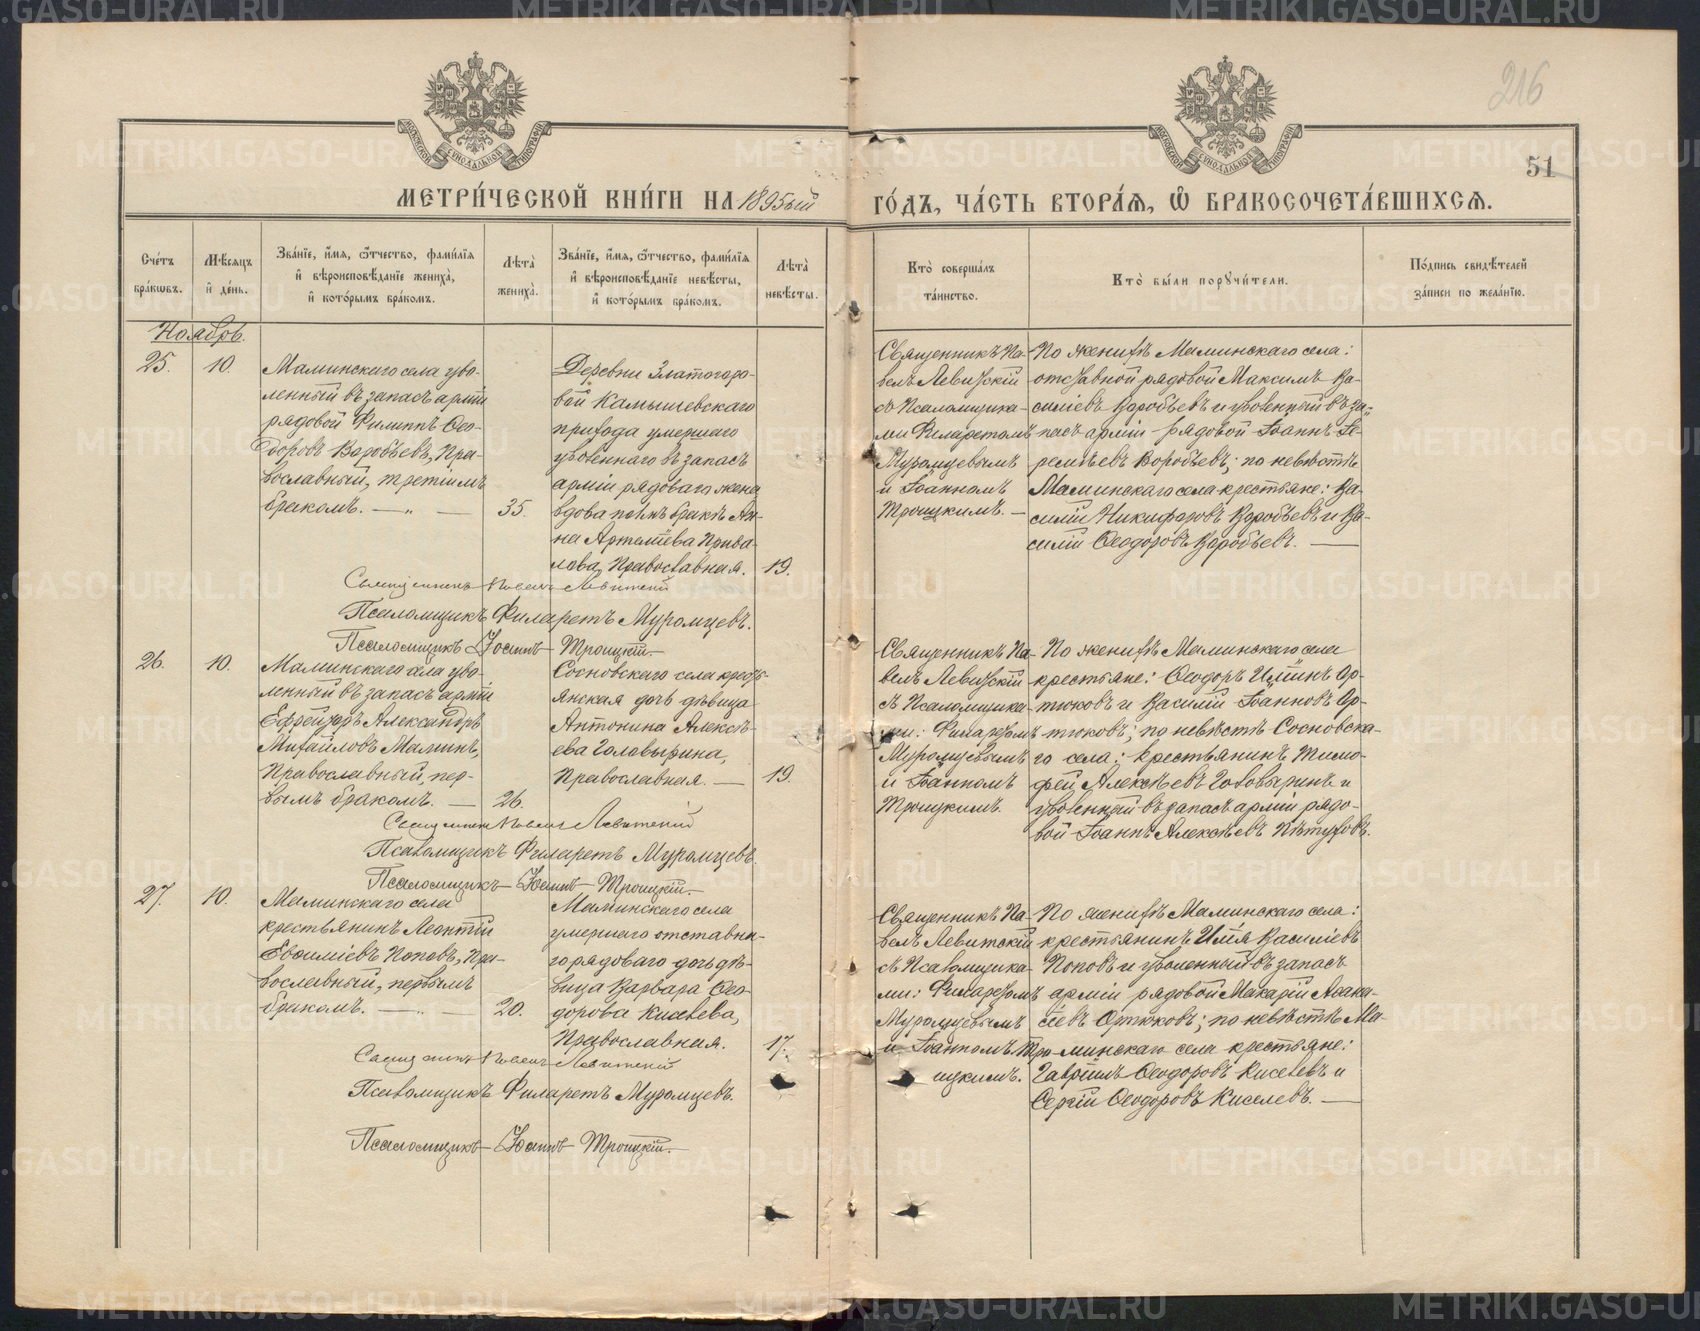 216
51
МОСКОВСКОЙ СѴНОДАЛЬНОЙ ТИПОГРАФІИ
МОСКОВСКОЙ СѴНОДАЛЬНОЙ ТИПОГРАФІИ
МЕТРИ́ЧЕСКОЙ КНИ́ГИ НА 1895ый ГО́ДЪ, ЧА́СТЬ ВТОРА́Ѧ, Ѽ БРАКОСОЧЕТА́ВШИХСѦ.
Сче́тъ бра́кѡвъ.
Мѣ́сяцъ и҆ де́нь.
Зва́нїе, и҆́мѧ, ѻ҆́тчество, фами́лїѧ и҆ вѣроисповѣ́данїе жениха̀, и҆ кото́рымъ бра́комъ.
Лѣта̀ жениха̀.
Зва́нїе, и҆́мѧ, ѻ҆́тчество, фами́лїѧ и҆ вѣроисповѣ́данїе невѣ́сты, и҆ кото́рымъ бра́комъ.
Лѣта̀ невѣ́сты.
Кто̀ соверша́лъ та́инство.
Кто̀ бы́ли порꙋчи́тели.
По́дпись свидѣ́телей за́писи по жела́нїю.
Ноябрь.
25.
10.
Маминскаго села уво-
ленный въ запасъ арміи
рядовой Филиппъ Ѳео-
доровъ Воробьевъ, Пра-
вославный, третіимъ
бракомъ. — „ —
35.
Деревни Златогоро-
вой Камышевскаго
прихода умершаго
уволеннаго въ запасъ
арміи рядоваго жена
вдова по 1мъ бракѣ Ан-
на Артеміева Прива-
лова, Православная.
19.
Священникъ Па-
велъ Левитскій
съ Псаломщика-
ми Филаретомъ
Муромцевымъ
и Іоанномъ
Троицкимъ. —
По женихѣ Маминскаго села:
отставной рядовой Максимъ Ва-
силіевъ Воробьевъ и уволенный въ за-
пасъ арміи рядовой Іоаннъ Іе-
реміевъ Воробьевъ; по невѣстѣ
Маминскаго села крестьяне: Ва-
силій Никифоровъ Воробьевъ и Ва-
силій Ѳеодоровъ Воробьевъ. —
Священникъ Павелъ Левитскій
Псаломщикъ Филаретъ Муромцевъ.
Псаломщикъ Іоаннъ Троицкій.
26.
10.
Маминскаго села уво-
ленный въ запасъ арміи
Ефрейторъ Александръ
Михайловъ Маминъ,
Православный, пер-
вымъ бракомъ. —
26.
Сосновскаго села кресть-
янская дочь дѣвица
Антонина Алексѣ-
ева Головырина,
Православная. —
19.
Священникъ Па-
велъ Левитскій
съ Псаломщика-
ми: Филаретомъ
Муромцевымъ
и Іоанномъ
Троицкимъ.
По женихѣ Маминскаго села
крестьяне: Ѳеодоръ Иліинъ Ор-
тюковъ и Василій Іоанновъ Ор-
тюковъ; по невѣстѣ Сосновска-
го села: крестьянинъ Тимо-
фей Алексѣевъ Головыринъ и
уволенный въ запасъ арміи рядо-
вой Іоаннъ Алексѣевъ Пѣтуховъ.
Священникъ Павелъ Левитскій
Псаломщикъ Филаретъ Муромцевъ
Псаломщикъ Іоаннъ Троицкій.
27.
10.
Маминскаго села
крестьянинъ Леонтій
Евѳиміевъ Поповъ, Пра-
вославный, первымъ
бракомъ. — „ —
20.
Маминскаго села
умершаго отставна-
го рядоваго дочь дѣ-
вица Варвара Ѳео-
дорова Киселева,
Православная.
17.
Священникъ Па-
велъ Левитскій
съ Псаломщика-
ми: Филаретомъ
Муромцевымъ
и Іоанномъ Тро-
ицкимъ.
По женихѣ Маминскаго села:
крестьянинъ Илія Василіевъ
Поповъ и уволенный въ запасъ
арміи рядовой Макарій Асака-
сіевъ Ортюковъ; по невѣстѣ Ма-
минскаго села крестьяне:
Гавріилъ Ѳеодоровъ Киселевъ и
Сергій Ѳеодоровъ Киселевъ. —
Священникъ Павелъ Левитскій
Псаломщикъ Филаретъ Муромцевъ.
Псаломщикъ Іоаннъ Троицкій.
METRIKI.GASO-URAL.RU